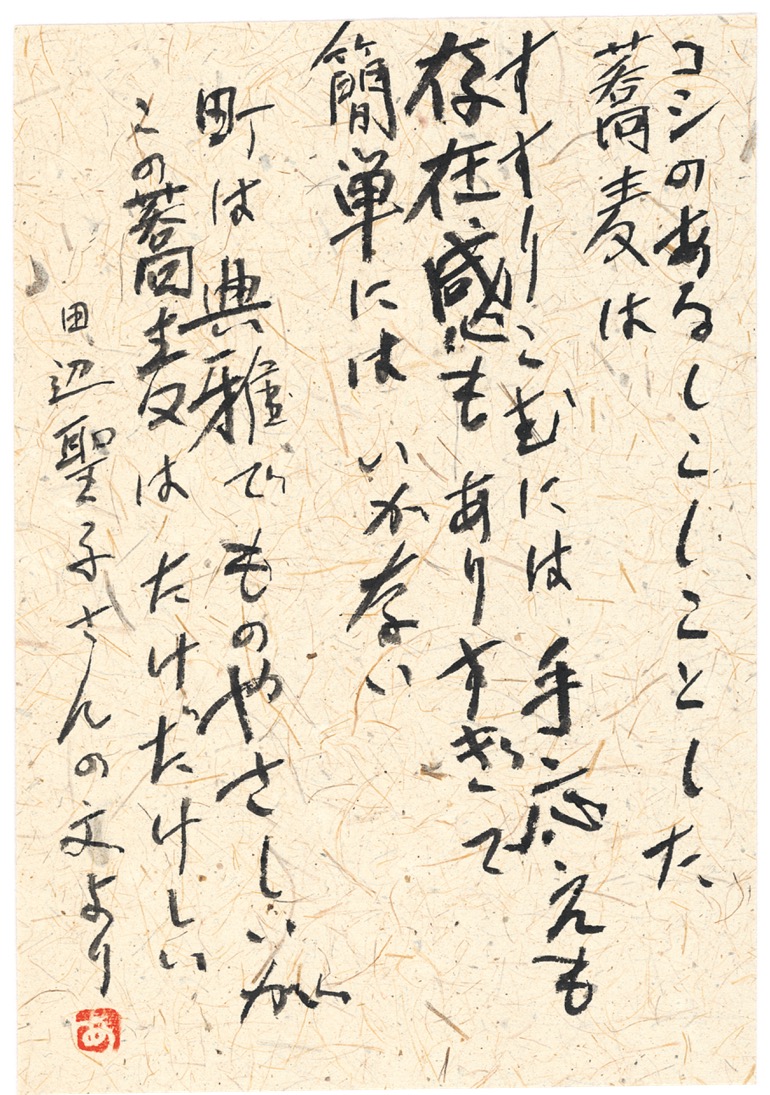 コシのあるしこしことした
蕎麦は
すすりこむには手応えも
存在感もありすぎて
簡単にはいかない
町は典雅でものやさしいが
この蕎麦はたけだけしい
田辺聖子さんの文より
あ